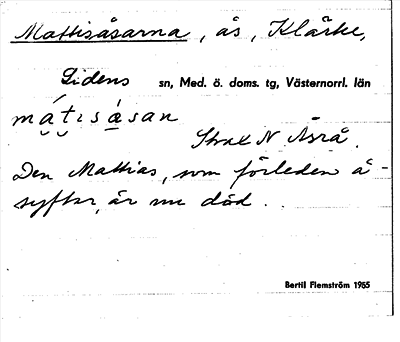 Mattisåsarna, ås, Klärke,
Lidens sn, Med. ö. doms. tg, Västernorrl. län
mátisåsan
Strax N Åsrå.
Den Mattias, som förleden å-
syftar, är nu död.
Bertil Flemström 1965